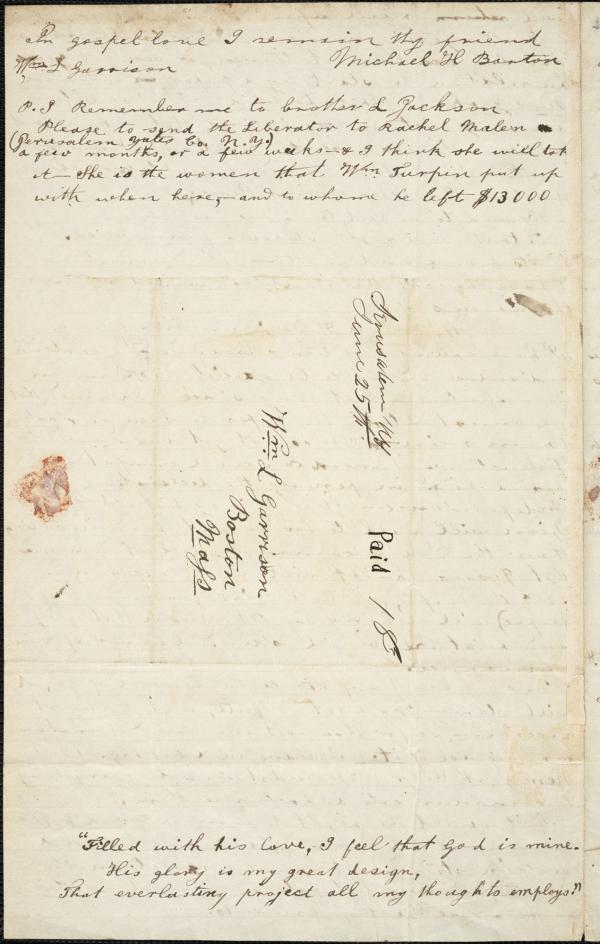 In gospel love I remain thy friend
Michael H Barton
Wm L Garrison
P.S Remember me to brother L Jackson
Please to send the Liberator to Rachel Malen
(Jerusalem Yates Co. N.Y.)
a few months, or a few weeks - & I think she will
it - She is the women that Wm. Turpin put up
with when here, - and to whome he left $13000
Jerusalem NY
June 25th
Paid 18
Wm. L Garrison
Boston
Mass
"Filled with his love, I feel that God is mine.
His glory is my great design,
That everlasting project all my thoughts employs."